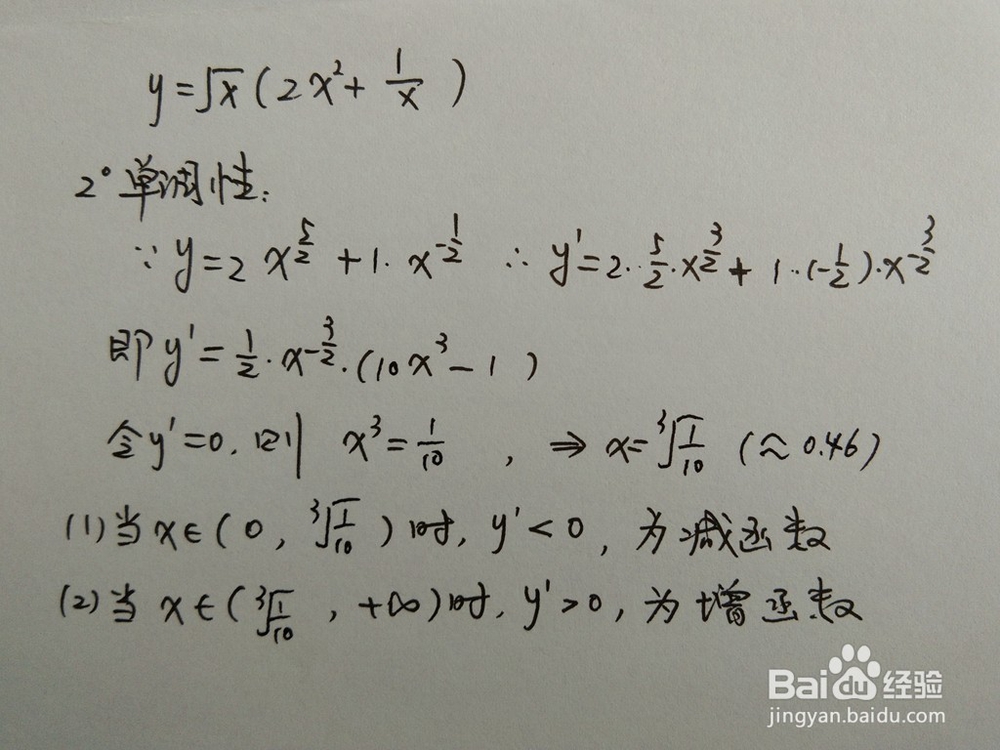 y=√x(2x²+1/x)
2°单调性:
∵y=2x^(5/2)+1·x^(-1/2) ∴y'=2·5/2·x^(3/2)+1·(-1/2)·x^(-3/2)
即y'=1/2·x^(-3/2)·(10x³-1)
令y'=0,则 x³=1/10 , ⇒ x=³√(1/10) (≈0.46)
(1)当x∈(0,³√(1/10))时,y'<0,为减函数
(2)当x∈(³√(1/10),+∞)时,y'>0,为增函数
Baidu经验
jingyan.baidu.com